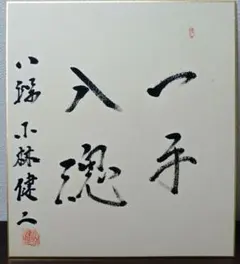 一手
入魂
八段 小林健二